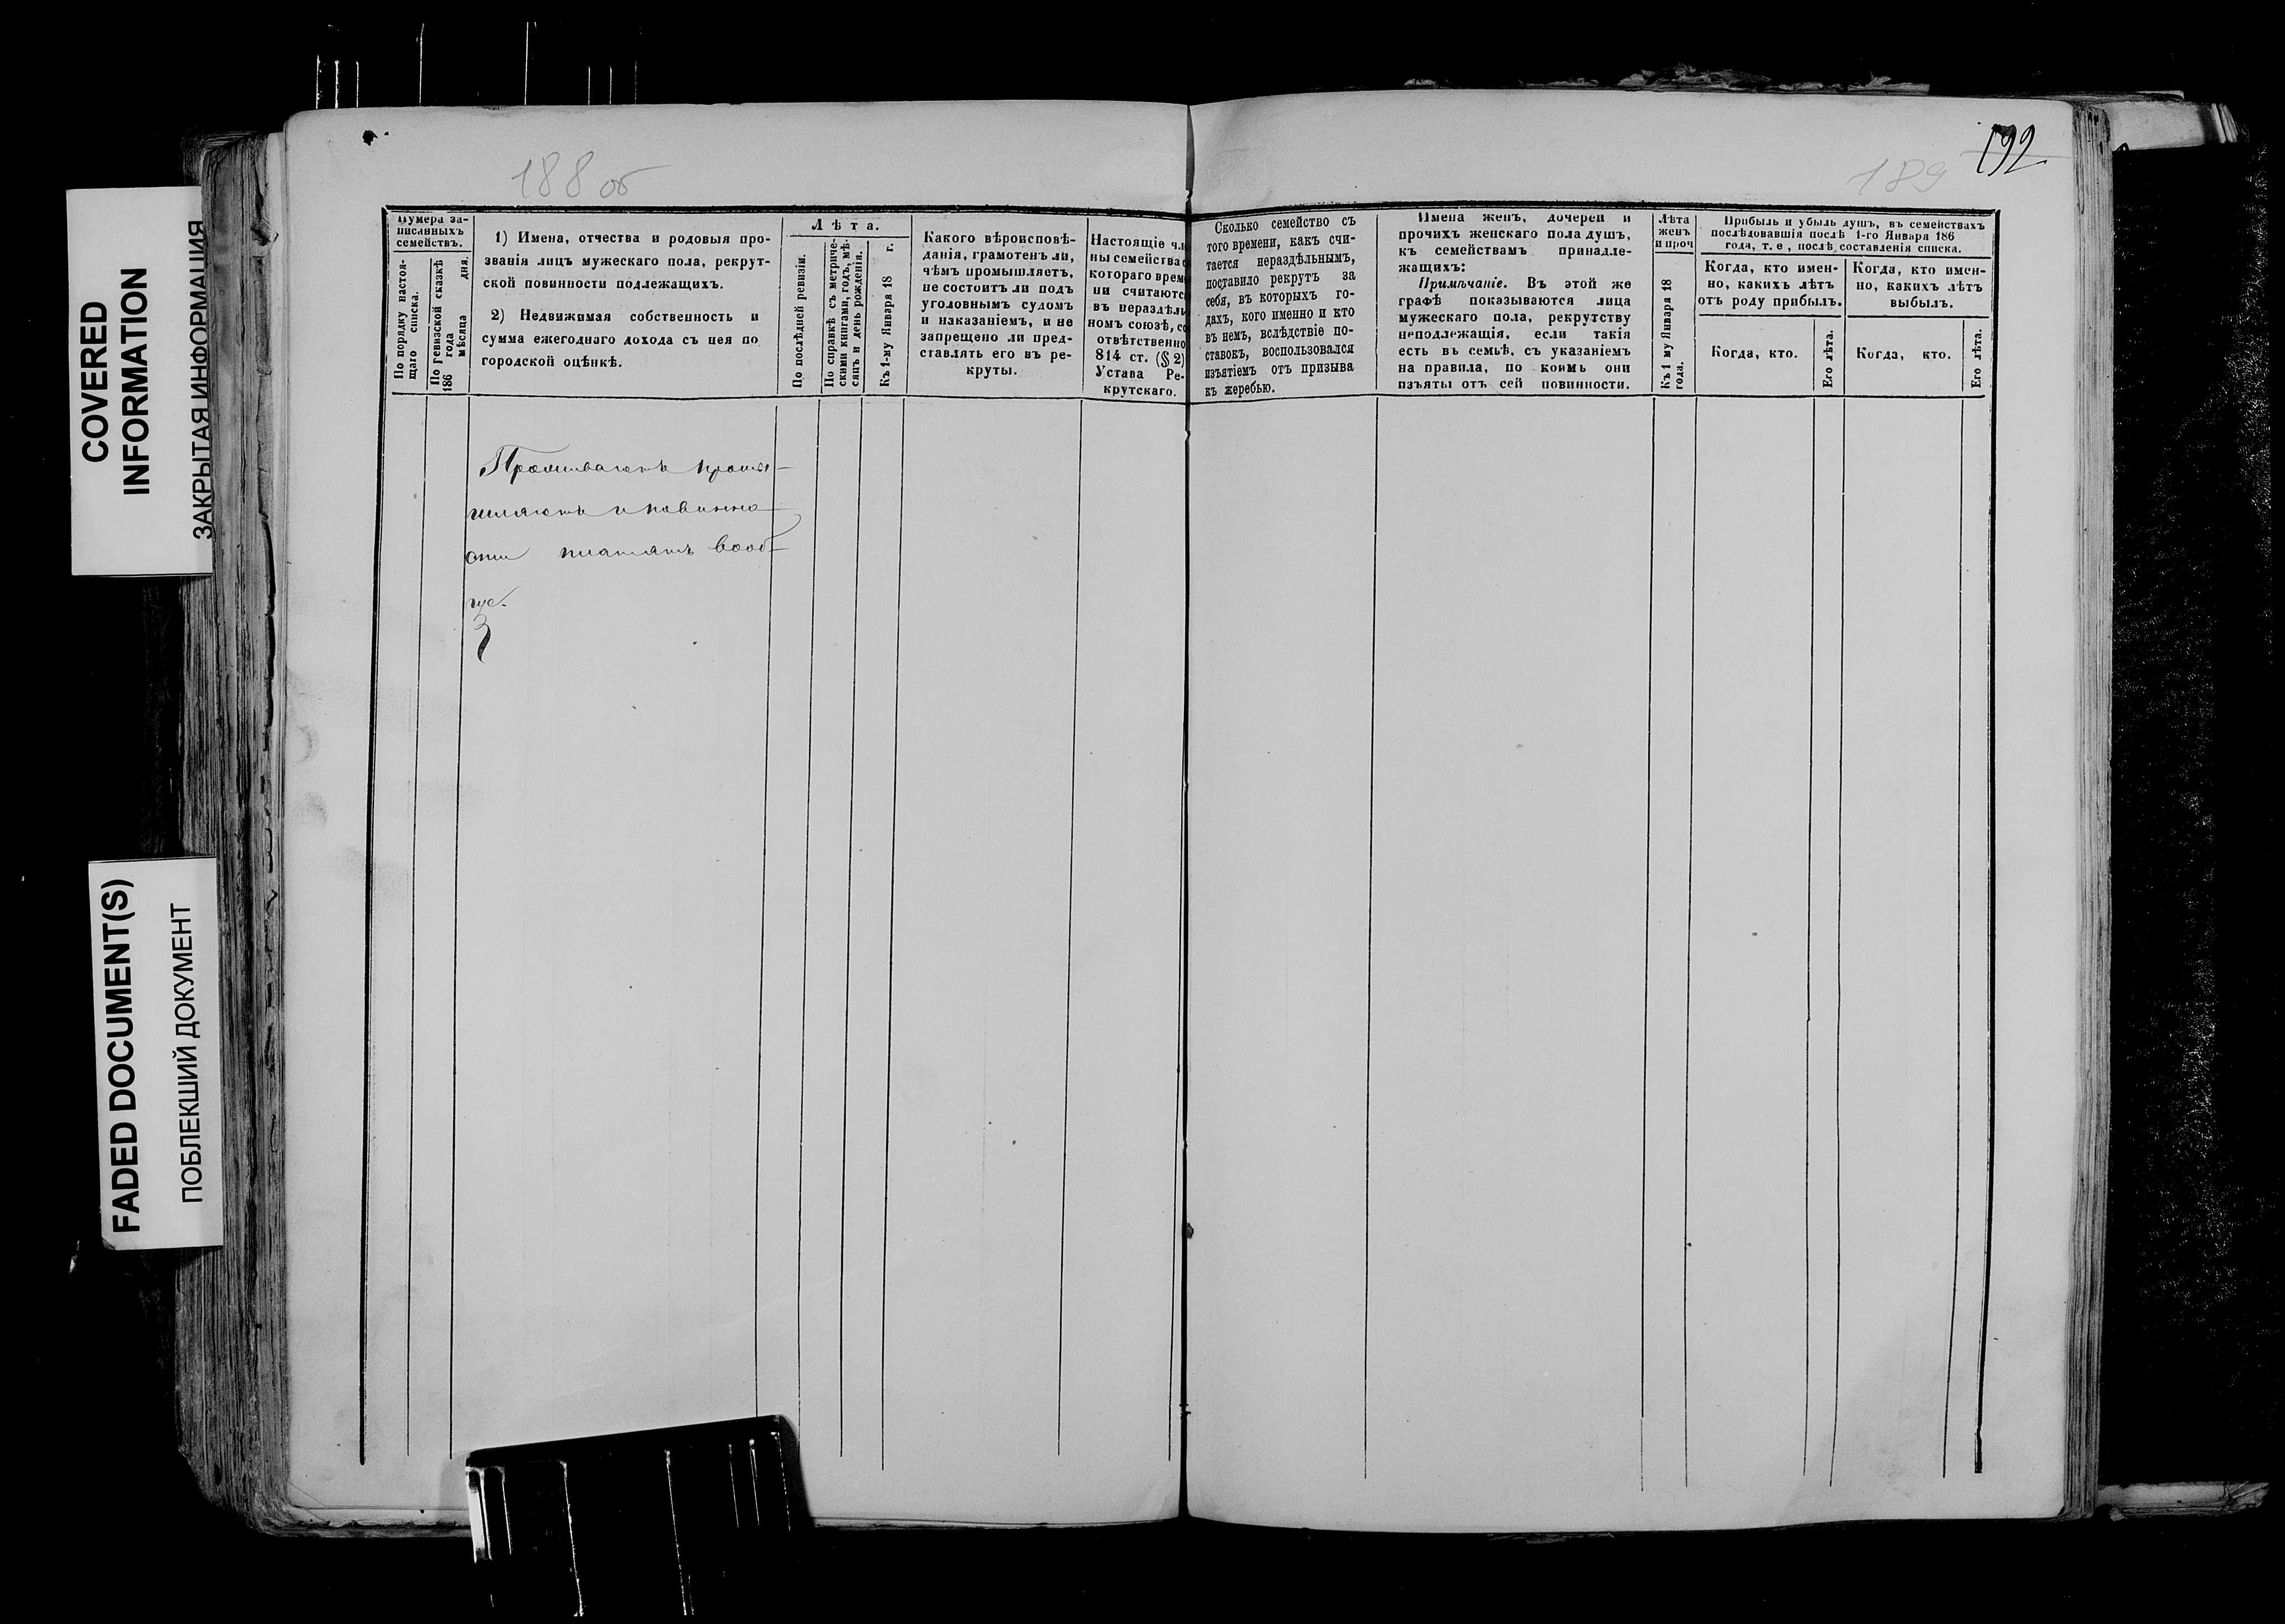 188 об
189
192
COVERED
INFORMATION
ЗАКРЫТАЯ ИНФОРМАЦИЯ
FADED DOCUMENT(S)
ПОБЛЕКШИЙ ДОКУМЕНТ
Нумера за-
писанныхъ
семействъ.
По порядку настоя-
щаго списка.
По ревизской сказкѣ
186 года мѣсяца дня.
1) Имена, отчества и родовыя про-
званія лицъ мужескаго пола, рекрут-
ской повинности подлежащихъ.
2) Недвижимая собственность и
сумма ежегоднаго дохода съ нея по
городской оцѣнкѣ.
Лѣта.
По послѣдней ревизіи.
По справкѣ съ метриче-
скими книгами, годъ, мѣ-
сяцъ и день рожденія.
Къ 1-му Января 18 г.
Какого вѣроисповѣ-
данія, грамотенъ ли,
чѣмъ промышляетъ,
не состоитъ ли подъ
уголовнымъ судомъ
и наказаніемъ, и не
запрещено ли пред-
ставлять его въ ре-
круты.
Настоящіе чл
ны семейства с
котораго врем
ни считаютс
въ нераздѣль
номъ союзѣ, со
отвѣтственно
814 ст. (§ 2)
Устава Ре-
крутскаго.
Сколько семейство съ
того времени, какъ счи-
тается нераздѣльнымъ,
поставило рекрутъ за
себя, въ которыхъ го-
дахъ, кого именно и кто
въ немъ, вслѣдствіе по-
ставокъ, воспользовался
изъятіемъ отъ призыва
къ жеребью.
Имена женъ, дочерей и
прочихъ женскаго пола душъ,
къ семействамъ принадле-
жащихъ:
Примѣчаніе. Въ этой же
графѣ показываются лица
мужескаго пола, рекрутству
неподлежащія, если такія
есть въ семьѣ, съ указаніемъ
на правила, по коимъ они
изъяты отъ сей повинности.
Лѣта
женъ
и проч
Къ 1 му Января 18
года.
Прибыль и убыль душъ, въ семействахъ
послѣдовавшія послѣ 1-го Января 186
года, т. е, послѣ составленія списка.
Когда, кто имен-
но, какихъ лѣтъ
отъ роду прибылъ.
Когда, кто.
Его лѣта.
Когда, кто имен-
но, какихъ лѣтъ
выбылъ.
Когда, кто.
Его лѣта.
Проживаютъ промы-
шляютъ и повинно-
сти платятъ вооб-
ще.